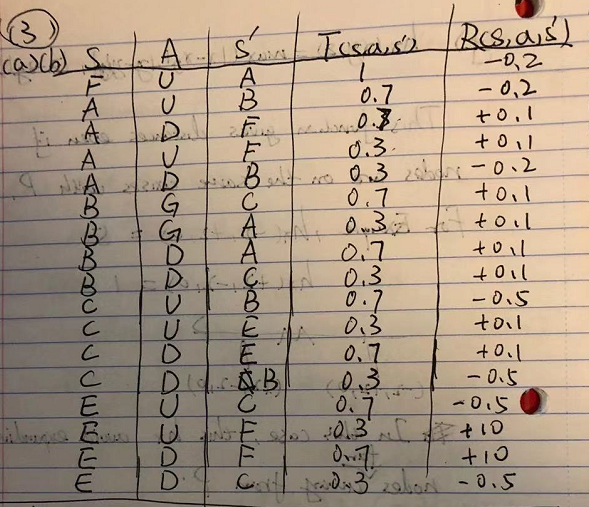 (3)
(a)(b) S A S' T(s,a,s') R(s,a,s')
F U A 1 -0.2
A U B 0.7 -0.2
A D F 0.7 +0.1
A U F 0.3 +0.1
A D B 0.3 -0.2
B G C 0.7 +0.1
B G A 0.3 +0.1
B D A 0.7 +0.1
B D C 0.3 +0.1
C U B 0.7 -0.5
C U E 0.3 +0.1
C D E 0.7 +0.1
C D B 0.3 -0.5
E U C 0.7 -0.5
E U F 0.3 +10
E D F 0.7 +10
E D C 0.3 -0.5